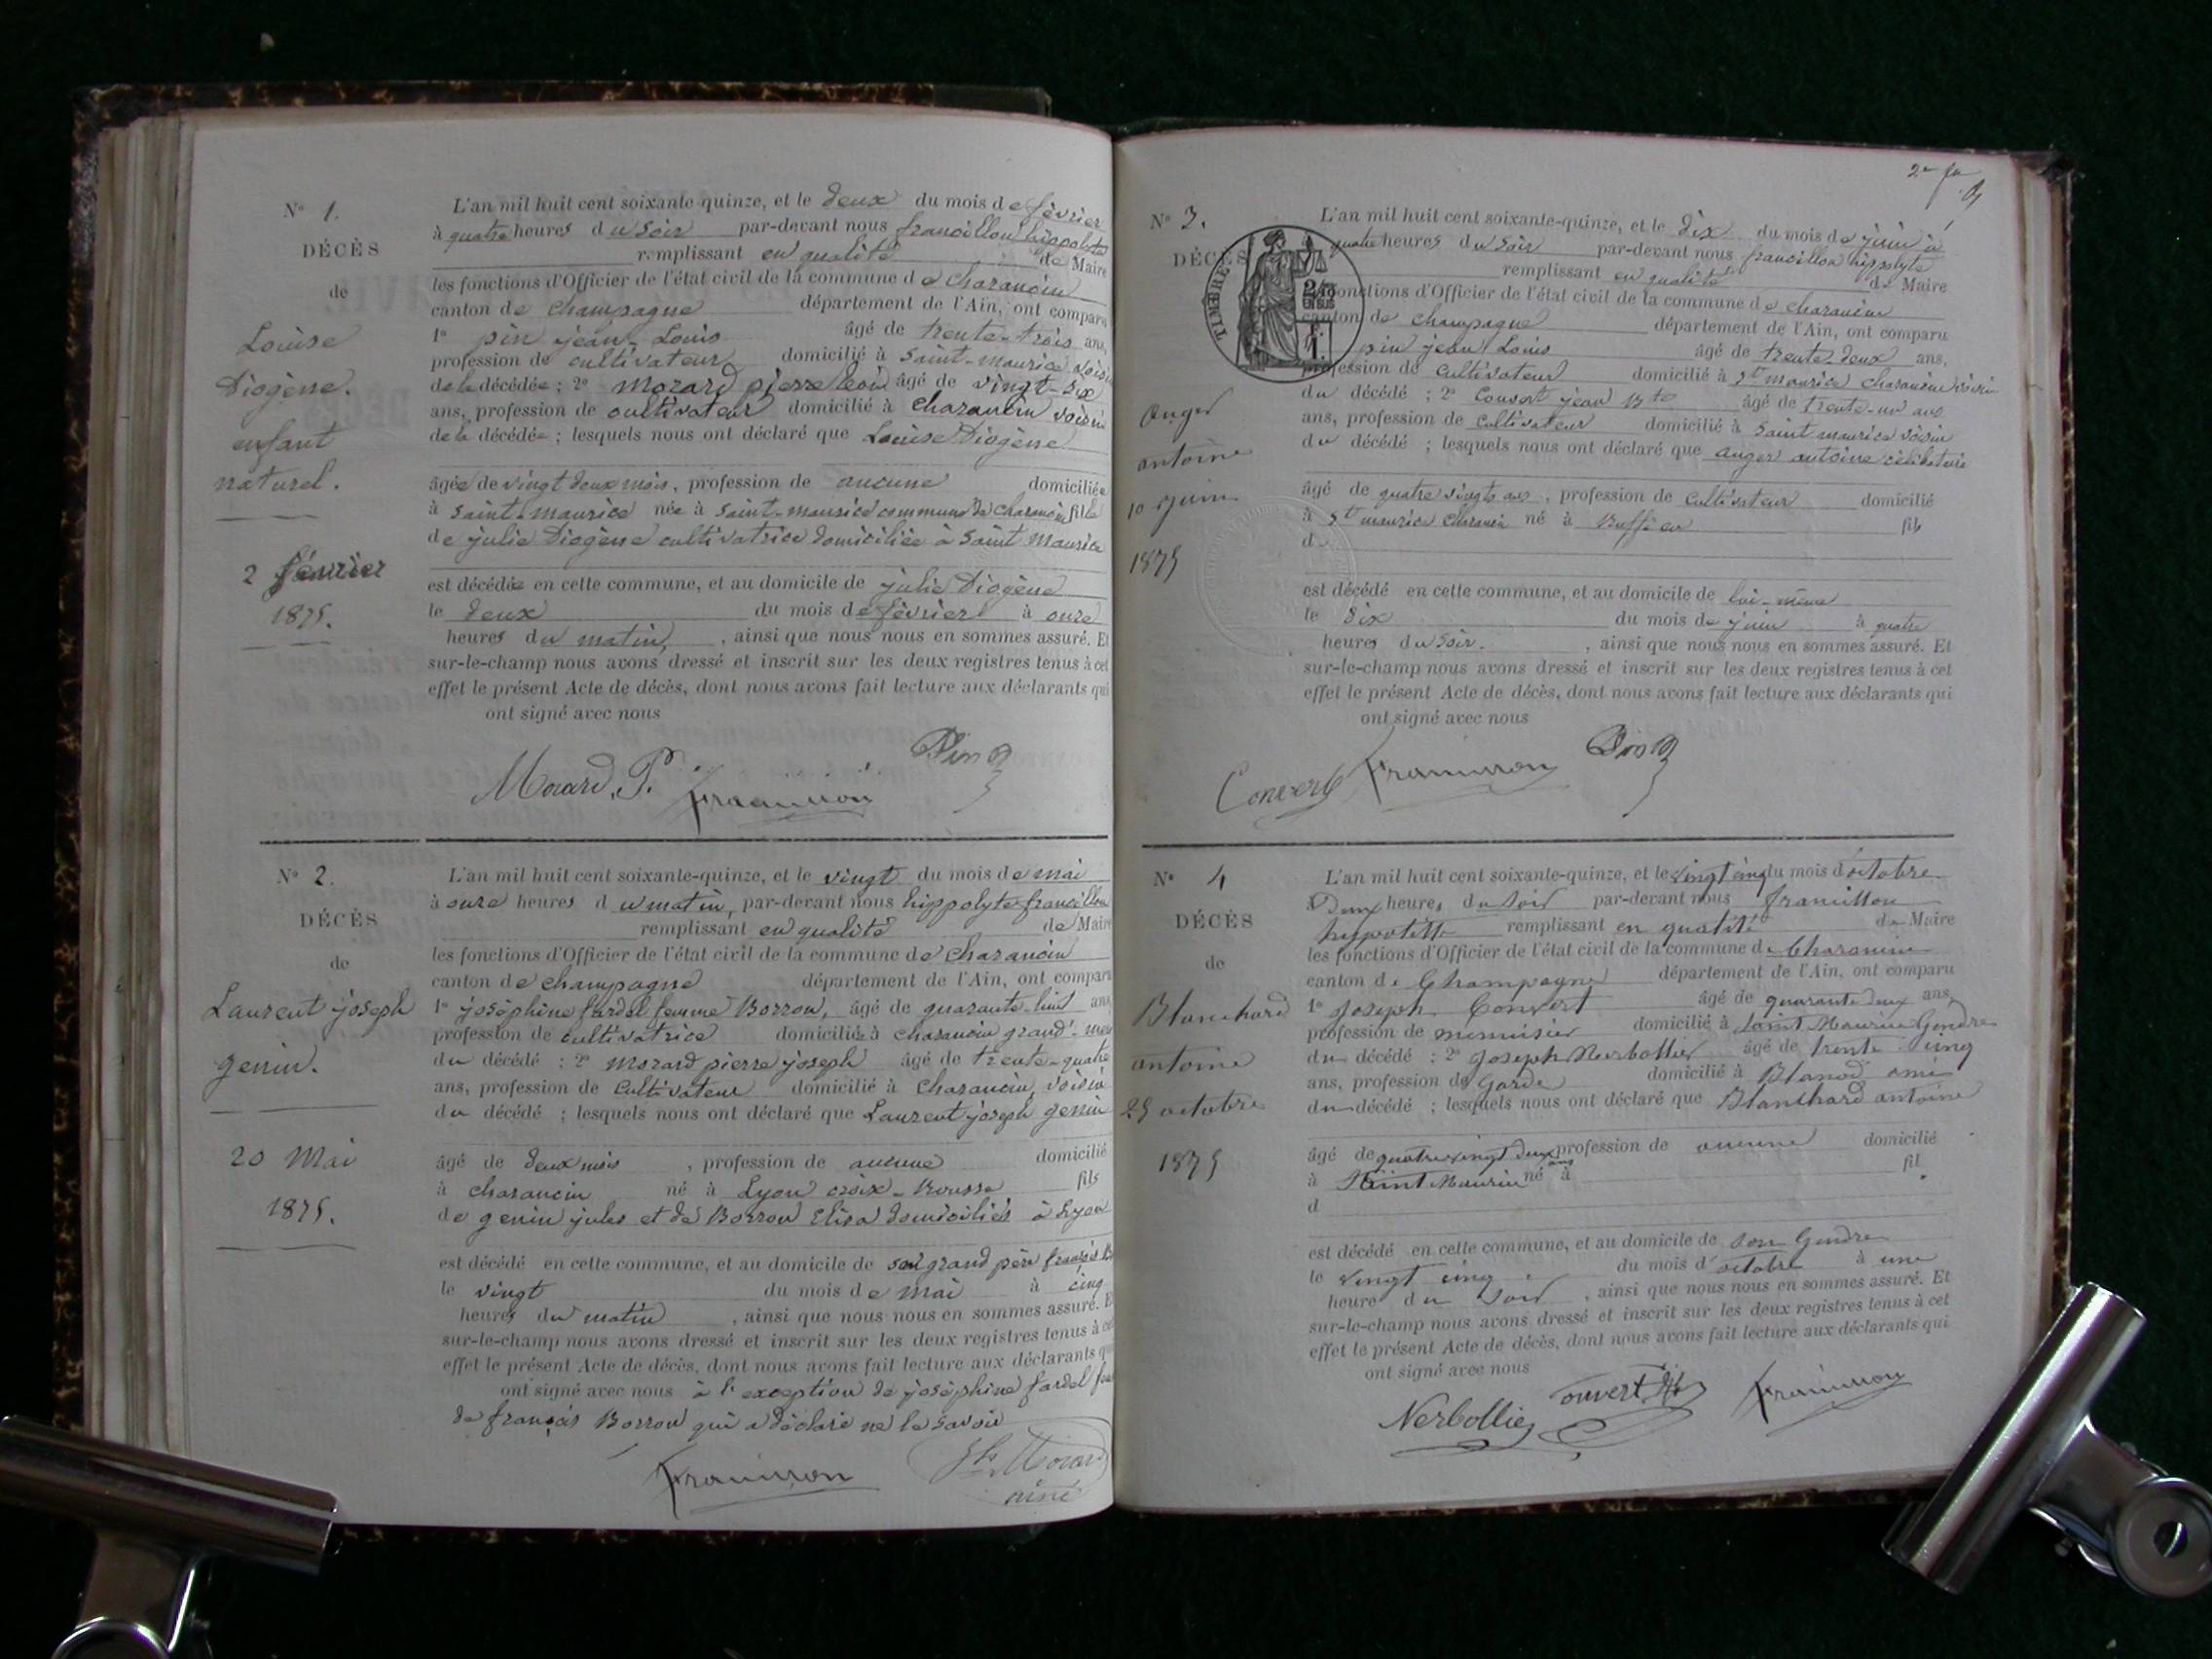 N° 1.
DÉCÈS
de
Louise
Diogène.
enfant
naturel.
2 février
1875.
L'an mil huit cent soixante-quinze, et le deux du mois de février
à quatre heures du soir par-devant nous francillon hippolyte
remplissant en qualité de Maire
les fonctions d'Officier de l'état civil de la commune de charancin
canton de champagne département de l'Ain, ont comparu
1° pin jean-Louis âgé de trente-trois ans,
profession de cultivateur domicilié à saint-maurice voisin
de la décédée ; 2° morard pierre âgé de vingt-six
ans, profession de cultivateur domicilié à charancin voisin
de la décédée ; lesquels nous ont déclaré que Louise Diogène
âgée de vingt deux mois, profession de aucune domiciliée
à saint-maurice née à saint-maurice commune de charancin fille
de julie Diogène cultivatrice domiciliée à saint maurice
est décédée en cette commune, et au domicile de julie Diogène
le deux du mois de février à onze
heures du matin, , ainsi que nous nous en sommes assuré. Et
sur-le-champ nous avons dressé et inscrit sur les deux registres tenus à cet
effet le présent Acte de décès, dont nous avons fait lecture aux déclarants qui
ont signé avec nous
Morard. P. francillon Pin
N° 2.
DÉCÈS
de
Laurent joseph
genin.
20 Mai
1875.
L'an mil huit cent soixante-quinze, et le vingt du mois de mai
à onze heures du matin, par-devant nous hippolyte francillon
remplissant en qualité de Maire
les fonctions d'Officier de l'état civil de la commune de charancin
canton de champagne département de l'Ain, ont comparu
1° joséphine fardel femme Borron, âgé de quarante-huit ans,
profession de cultivatrice domiciliée à charancin grand'-mère
du décédé : 2° morard pierre joseph âgé de trente-quatre
ans, profession de cultivateur domicilié à charancin, voisin
du décédé ; lesquels nous ont déclaré que Laurent joseph genin
âgé de deux mois , profession de aucune domicilié
à charancin né à Lyon croix-Rousse fils
de genin jules et de Borron Elisa domiciliés à Lyon
est décédé en cette commune, et au domicile de son grand père françois
le vingt du mois de mai à cinq
heures du matin , ainsi que nous nous en sommes assuré. E
sur-le-champ nous avons dressé et inscrit sur les deux registres tenus à cet
effet le présent Acte de décès, dont nous avons fait lecture aux déclarants qui
ont signé avec nous à l'exception de joséphine fardel
de françois Borron qui a déclaré ne le savoir
francillon Morard
ainé
2e
N° 3.
DÉCÈS
TIMBRE
2/10
EN SUS
auger
antoine
10 juin
1875
L'an mil huit cent soixante-quinze, et le dix du mois de juin à
quatre heures du soir par-devant nous francillon hippolyte
remplissant en qualité de Maire
fonctions d'Officier de l'état civil de la commune de charancin
canton de champagne département de l'Ain, ont comparu
pin jean Louis âgé de trente-deux ans,
profession de cultivateur domicilié à St maurice charancin voisin
du décédé ; 2° Convert jean Bte âgé de trente-un ans
ans, profession de cultivateur domicilié à saint maurice voisin
du décédé ; lesquels nous ont déclaré que auger antoine célibataire
âgé de quatre vingts ans , profession de cultivateur domicilié
à St maurice charancin né à fils
d
est décédé en cette commune, et au domicile de lui-même
le dix du mois de juin à quatre
heures du soir. , ainsi que nous nous en sommes assuré. Et
sur-le-champ nous avons dressé et inscrit sur les deux registres tenus à cet
effet le présent Acte de décès, dont nous avons fait lecture aux déclarants qui
ont signé avec nous
Convert francillon Pin
N° 4
DÉCÈS
de
Blanchard
antoine
25 octobre
1875
L'an mil huit cent soixante-quinze, et le vingt cinq du mois d'octobre
à Deux heures du soir par-devant nous francillon
hypolitte remplissant en qualité de Maire
les fonctions d'Officier de l'état civil de la commune de Charancin
canton de Champagne département de l'Ain, ont comparu
1° Joseph Convert âgé de quarante deux ans,
profession de menuisier domicilié à saint Maurice Gendre
du décédé : 2° Joseph Nerbollier âgé de trente cinq
ans, profession de Garde domicilié à Blanod ami
du décédé ; lesquels nous ont déclaré que Blanchard antoine
âgé de quatre vingt deux ans profession de aucune domicilié
à Saint Maurice né à fil
d
est décédé en cette commune, et au domicile de son Gendre
le vingt cinq du mois d'octobre à une
heure du soir , ainsi que nous nous en sommes assuré. Et
sur-le-champ nous avons dressé et inscrit sur les deux registres tenus à cet
effet le présent Acte de décès, dont nous avons fait lecture aux déclarants qui
ont signé avec nous
Nerbollier Convert francillon